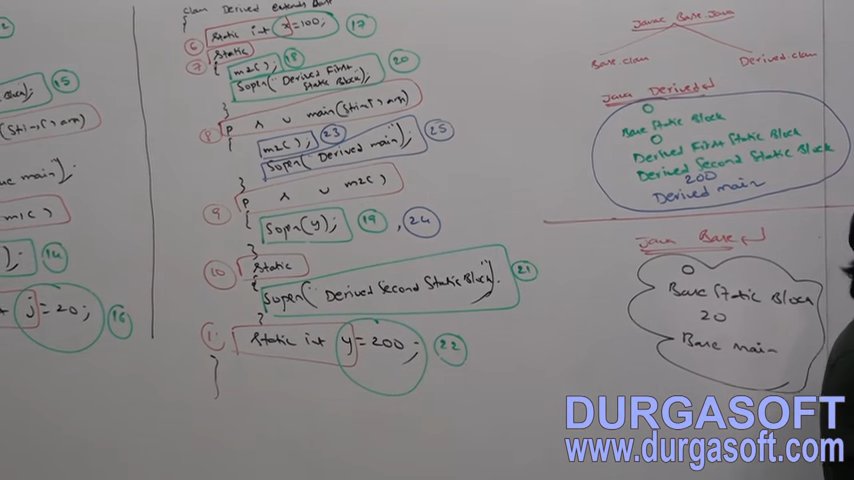 2
15
(String[] args)
main");
m1()
);
14
j=20;
16
class Derived extends Base
{
6 static int x=100; 17
7 static
{ m2(); 18
Sopln("Derived First
Static Block"); 20
}
8 P s v main(String[] args)
{
m2(); 23
Sopln("Derived main"); 25
}
9 P s v m2()
{
Sopln(y); 19 , 24
}
10 static
{
Sopln("Derived Second Static Block"); 21
}
static int y=200; 22
}
Javac Base.Java
Base.class Derived.class
Java Derived↵
0
Base Static Block
0
Derived First Static Block
Derived Second Static Block
200
Derived main
Java Base↵
0
Base Static Block
20
Base main
DURGASOFT
www.durgasoft.com